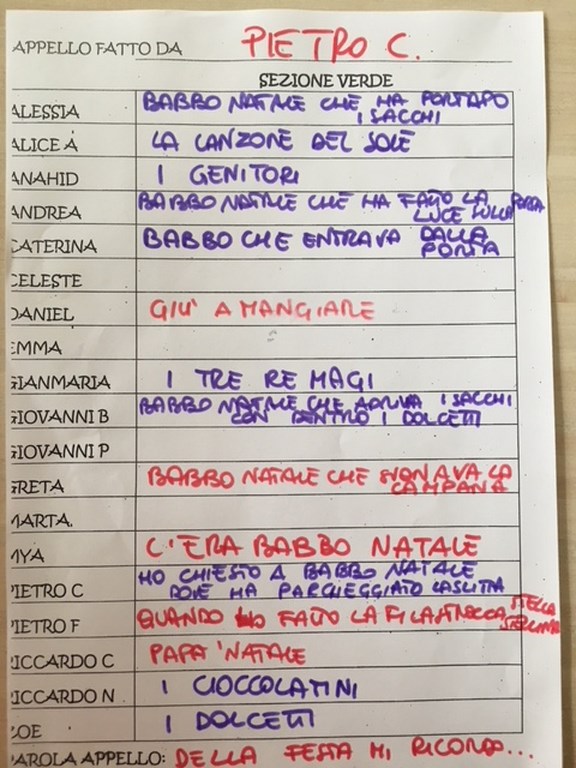 APPELLO FATTO DA PIETRO C.
SEZIONE VERDE
ALESSIA BABBO NATALE CHE HA PORTATO
I SACCHI
ALICE A LA CANZONE DEL SOLE
ANAHID I GENITORI
ANDREA BABBO NATALE CHE HA FATTO LA
LUCE SULLA PORTA
CATERINA BABBO CHE ENTRAVA DALLA
PORTA
CELESTE
DANIEL GIU' A MANGIARE
EMMA
GIANMARIA I TRE RE MAGI
GIOVANNI B BABBO NATALE CHE APRIVA I SACCHI
CON DENTRO I DOLCETTI
GIOVANNI P
GRETA BABBO NATALE CHE SUONAVA LA
CAMPANA
MARTA.
MYA C'ERA BABBO NATALE
PIETRO C HO CHIESTO A BABBO NATALE
DOVE HA PARCHEGGIATO LA SLITTA
PIETRO F QUANDO HO FATTO LA FILASTROCCA STELLA
STELLINA
RICCARDO C PAPA' NATALE
RICCARDO N I CIOCCOLATINI
ZOE I DOLCETTI
PAROLA APPELLO: DELLA FESTA MI RICORDO...